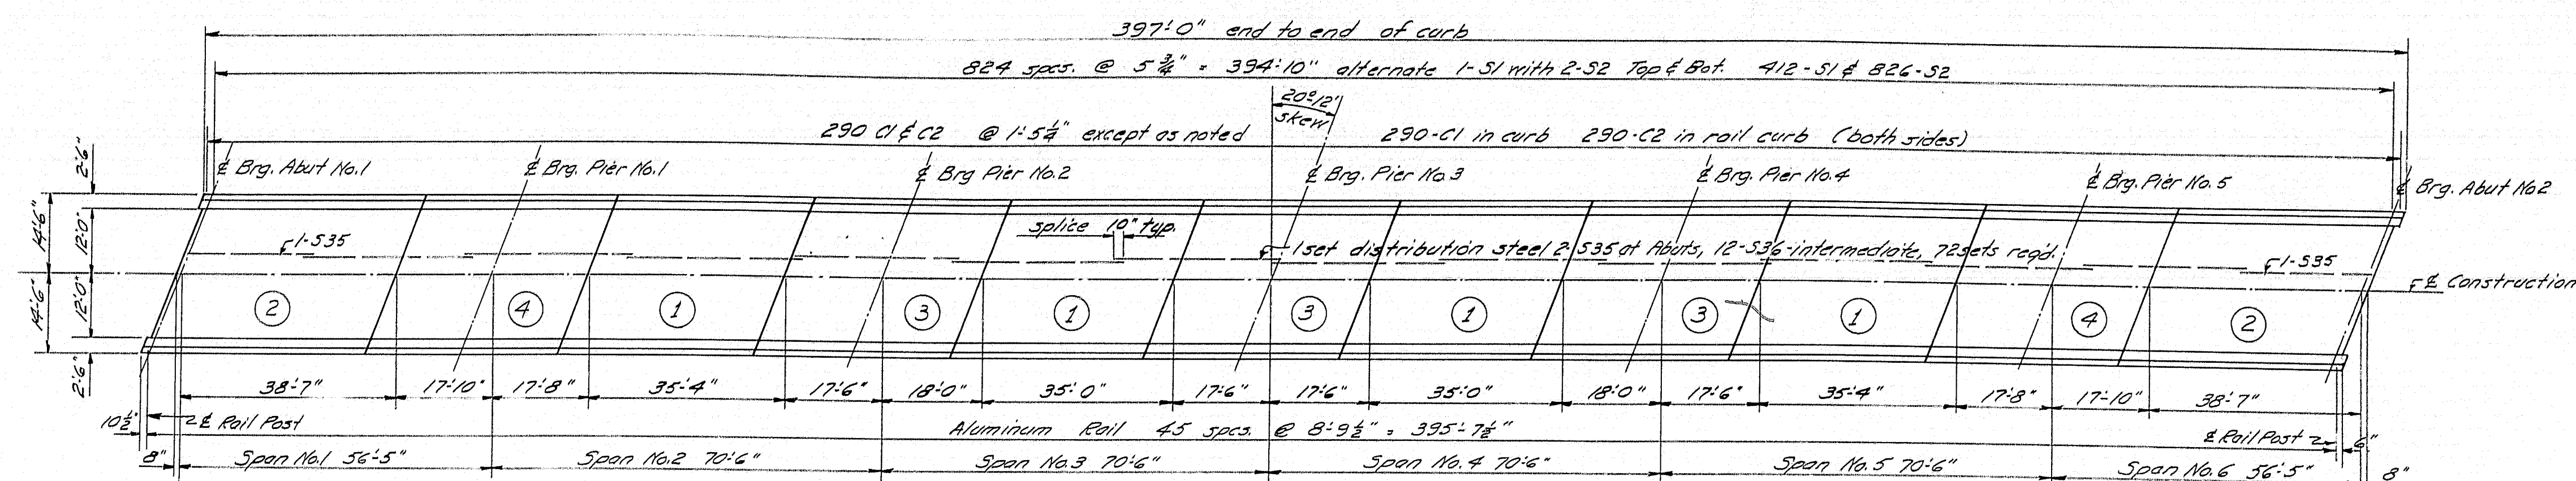 397'-0" end to end of curb
824 spcs. @ 5 3/4" = 394'-10" alternate 1-S1 with 2-S2 Top & Bot. 412-S1 & 826-S2
20°12'
skew
290 C1 & C2 @ 1'-5 1/4" except as noted 290-C1 in curb 290-C2 in rail curb (both sides)
2'-6"
℄ Brg. Abut No.1
℄ Brg. Pier No.1
℄ Brg Pier No.2
℄ Brg. Pier No.3
℄ Brg. Pier No.4
℄ Brg. Pier No.5
℄ Brg. Abut No2
14'-6"
12'-0"
splice 10" typ.
1-S35
1 set distribution steel 2-S35 at Abuts, 12-S36-intermediate, 72 sets reqd.
1-S35
℄ Construction
14'-6"
12'-0"
2
4
1
3
1
3
1
3
1
4
2
2'-6"
38'-7"
17'-10"
17'-8"
35'-4"
17'-6"
18'-0"
35'-0"
17'-6"
17'-6"
35'-0"
18'-0"
17'-6"
35'-4"
17'-8"
17'-10"
38'-7"
10 1/2"
℄ Rail Post
Aluminum Rail 45 spcs. @ 8'-9 1/2" = 395'-7 1/2"
℄ Rail Post
6"
8"
Span No.1 56'-5"
Span No.2 70'-6"
Span No.3 70'-6"
Span No.4 70'-6"
Span No.5 70'-6"
Span No.6 56'-5"
8"